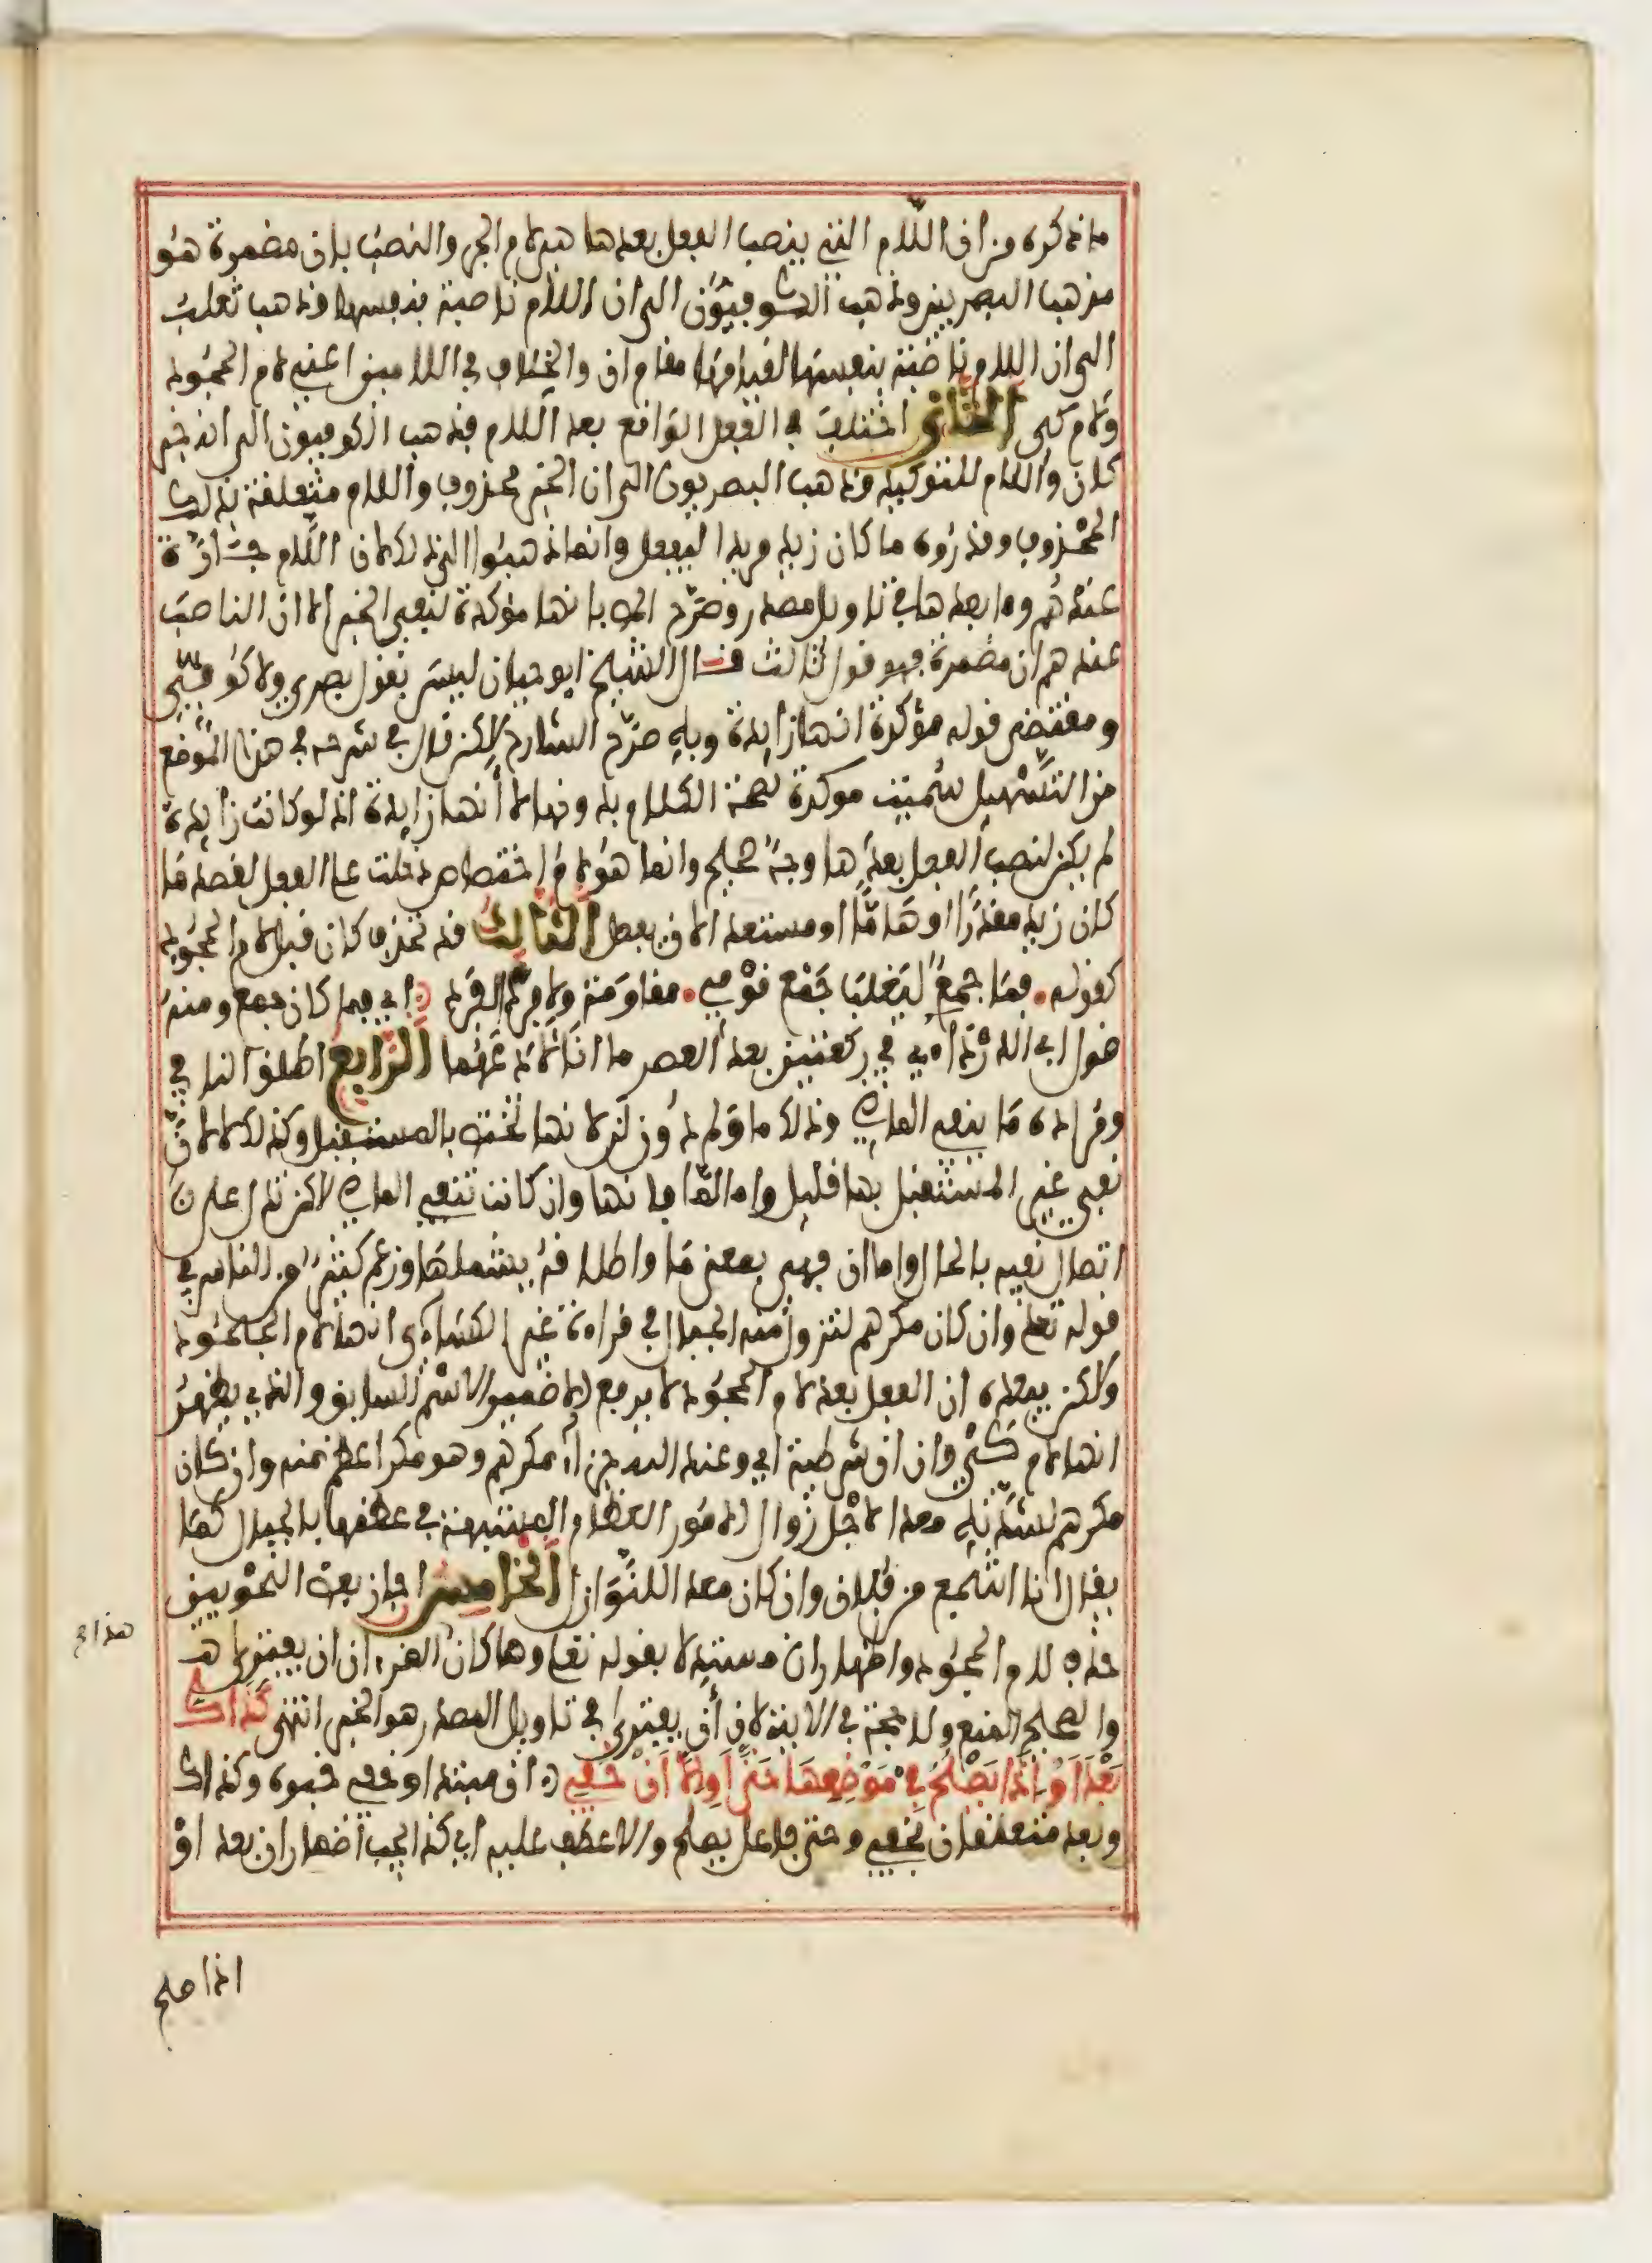 ما ذكره من ان اللام التي ينصب الفعل بعدها هي لام الجر والنصب بان مضمرة هو
مذهب البصريين وذهب الكوفيون الى ان اللام ناصبة بنفسها وذهب ثعلب
الى ان اللام ناصبة بنفسها لقيامها مقام ان والخلاف في اللامين اعني لام الجحود
ولام كي الثاني اختلف في الفعل الواقع بعد اللام فذهب الكوفيون الى انه خبر
كان واللام للتوكيد وذهب البصريون الى ان الخبر محذوف واللام متعلقة بذلك
المحذوف وقدروه ما كان زيد مريدا ليفعل وانما ذهبوا الى ذلك لان اللام جارة
عندهم وما بعدها في تاويل مصدر وصرح المص بانها مؤكدة لنفي الخبر الا ان الناصب
عندهم ان مضمرة فهو قول ثالث قال الشيخ ابو حيان ليس بقول بصري ولا كوفي
ومقتضى قوله مؤكدة انها زايدة وبه صرح الشارح لاكن قال في شرحه في هذا الموضع
من التسهيل سميت موكدة لصحة الكلام بدونها لا أنها زايدة اذ لو كانت زايدة
لم يكن لنصب الفعل بعدها وجه صحيح وانما هو لام اختصاص دخلت على الفعل لقصد ما
كان زيد مقدرا او هاما او مستعدا لان يفعل الثالث قد تحذف كان قبل لام الجحود
كقوله فما جمع ليغلب جمع قومي مقاومة ولا فرد لفرد اي فما كان جمع ومنه
قول ابي الدرداء في ركعتين بعد العصر ما انا لادعهما الرابع اطلق النا في
ومراده ما ينفي الماضي وذلك ما ولم دون لن لانها تختص بالمستقبل وكذلك لا لان
نفي غير المستقبل بها قليل واما لما فانها وان كانت تنفي الماضي لاكن تدل على
اتصال نفيه بالحال واما ان فهي بمعنى ما واطلاقه يشملها وزعم كثير من الناس في
قوله تعلى وان كان مكرهم لتزول منه الجبال في قراءة غير الكسائي انها لام الجحود
ولاكن يبعده ان الفعل بعد لام الجحود لا يرفع الا ضمير الاسم السابق والذي يظهر
انها لام كي وان ان شرطية اي وعند الله جزاء مكرهم وهو مكر اعظم منه وان كان
مكرهم لشدته معدا لاجل زوال الامور العظام المشبهة في عظمها بالجبال كما
يقال انا اشجع من فلان وان كان معدا للنوازل الخامس اجاز بعض النحويين
حذف لام الجحود واظهار ان مستدلا بقوله تعلى وما كان هذا القرءان ان يفترى
والصحيح المنع ولا حجة في الاية لان أن يفترى في تاويل المصدر هو الخبر انتهى كذاك
بعد او اذا يصلح في موضعها حتى او الا ان خفي ان مبتدا وخفي خبره وكذاك
وبعد متعلقان بخفي وحتى فاعل يصلح والا عطف عليه اي كذا يجب اضمار ان بعد او
اذا صلح